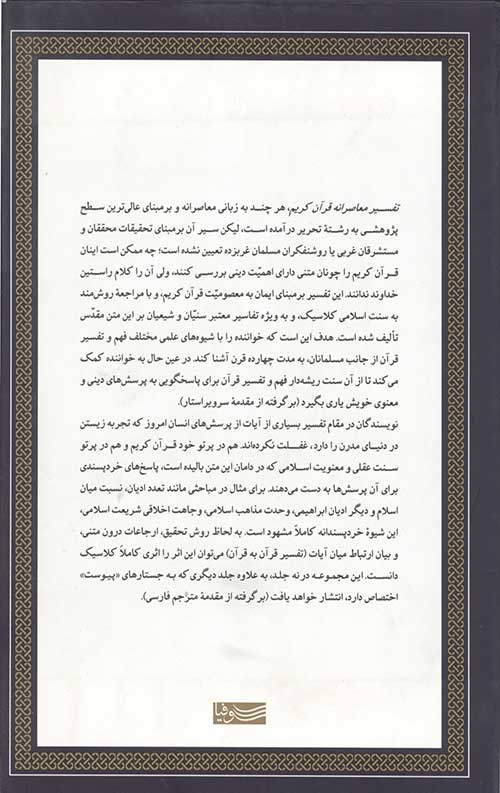 تفسیر معاصرانه قرآن کریم، هر چند به زبانی معاصرانه و بر مبنای عالی‌ترین سطح
پژوهشی به رشتهٔ تحریر درآمده است، لیکن سیر آن بر مبنای تحقیقات محققان و
مستشرقان غربی یا روشنفکران مسلمان غربزده تعیین نشده است؛ چه ممکن است اینان
قرآن کریم را چونان متنی دارای اهمیّت دینی بررسی کنند، ولی آن را کلام راستین
خداوند ندانند. این تفسیر بر مبنای ایمان به معصومیّت قرآن کریم، و با مراجعهٔ روش‌مند
به سنت اسلامی کلاسیک، و به ویژه تفاسیر معتبر سنیّان و شیعیان بر این متن مقدّس
تألیف شده است. هدف این است که خواننده را با شیوه‌های علمی مختلف فهم و تفسیر
قرآن از جانب مسلمانان، به مدت چهارده قرن آشنا کند. در عین حال به خواننده کمک
می‌کند تا از آن سنت ریشه‌دار فهم و تفسیر قرآن برای پاسخگویی به پرسش‌های دینی و
معنوی خویش یاری بگیرد (برگرفته از مقدمهٔ سرویراستار).
نویسندگان در مقام تفسیر بسیاری از آیات از پرسش‌های انسان امروز که تجربه زیستن
در دنیای مدرن را دارد، غفلت نکرده‌اند. هم در پرتو خود قرآن کریم و هم در پرتو
سنت عقلی و معنویت اسلامی که در دامان این متن بالیده است، پاسخ‌های خردپسندی
برای آن پرسش‌ها به دست می‌دهند. برای مثال در مباحثی مانند تعدد ادیان، نسبت میان
اسلام و دیگر ادیان ابراهیمی، وحدت مذاهب اسلامی، وجاهت اخلاقی شریعت اسلامی،
این شیوهٔ خردپسندانه کاملاً مشهود است. به لحاظ روش تحقیق، ارجاعات درون متنی،
و بیان ارتباط میان آیات (تفسیر قرآن به قرآن) می‌توان این اثر را اثری کاملاً کلاسیک
دانست. این مجموعه در نه جلد، به علاوه جلد دیگری که به جستارهای «پیوست»
اختصاص دارد، انتشار خواهد یافت (برگرفته از مقدمهٔ مترجم فارسی).
سوفیا